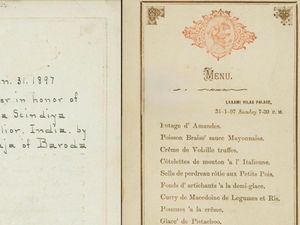 n. 31. 1897
er in honor of
a Scindiya
lior, India, by
ja of Baroda
MENU.
LAXAMI VILAS PALACE,
31-1-97 Sunday 7-30 P. M.
Potage d' Amandes.
Poisson Braise' sauce Mayonnaise.
Crême de Volaille truffes.
Côtelettes de mouton 'a l' Italienne.
Selle de perdreau rôtie aux Petits Pois.
Fonds d' artichauts 'a la demi-glace.
Curry de Macedoine de Legumes et Ris.
Pommes 'a la crême,
Glace' de Pistachoo